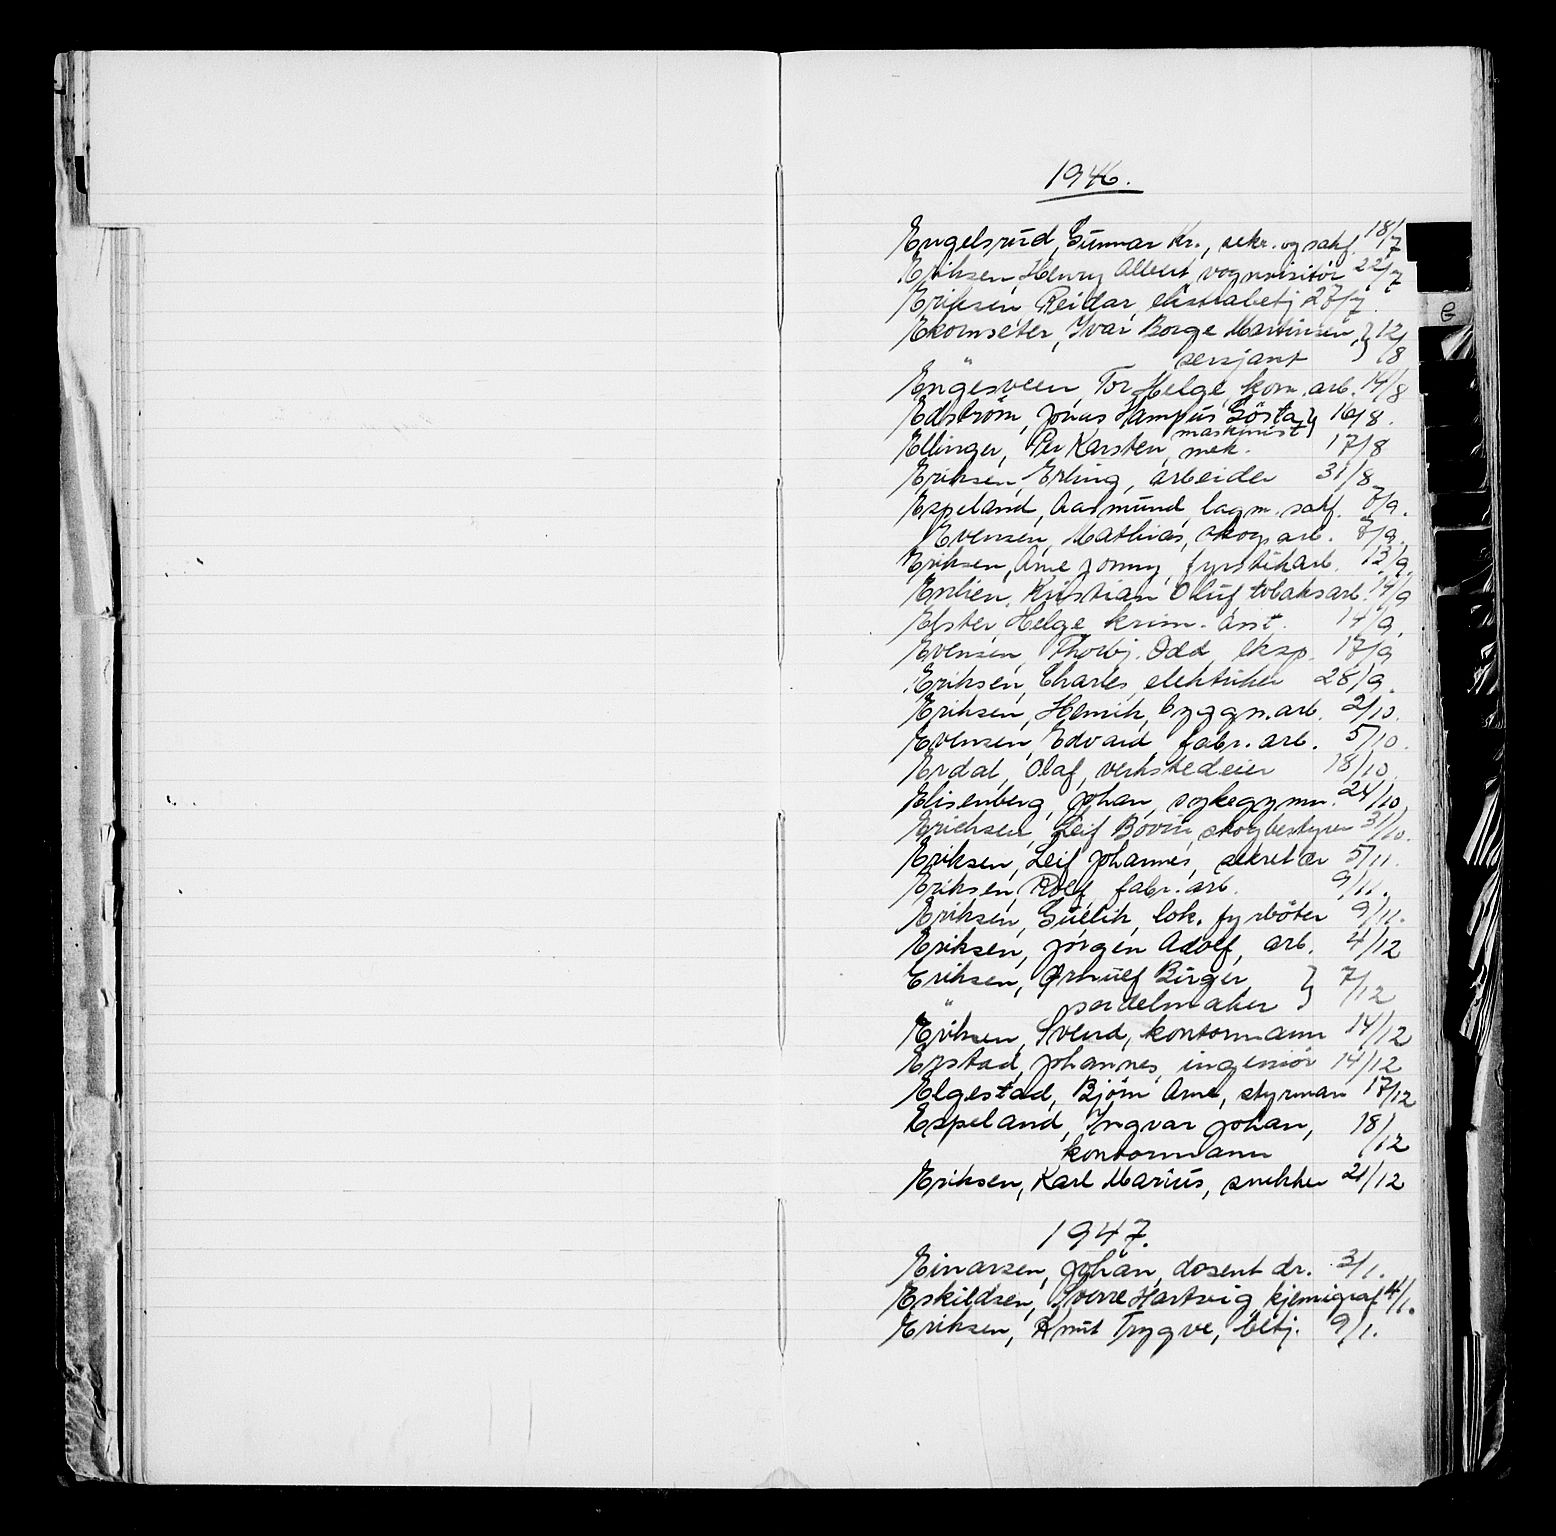 1946.
Engelsrud, Gunnar Kr., sekr. og sakf. 18/7
Eriksen, Henry Albert, vognvisitör 22/7
Eriksen, Reidar, ekstrabetj. 27/7.
Ekornseter, Ivar Borge Martinsen, } 12/8
" sersjant
Engesveen, Tor Helge, kom. arb. 14/8
Edström, Jonas Hampus Gösta } 16/8.
maskinist
Ellinger, Per Karsten, mek. 17/8
Eriksen, Erling, arbeider 31/8
Espeland, Aasmund, lagm. sakf. 7/9.
Evensen, Mathias, skogsarb. 7/9.
Eriksen, Arne Jonny, fyrstikarb. 13/9.
Enlien, Kristian Oluf tobaksarb. 14/9
Elster, Helge krim. asst. 14/9.
Evensen, Thorbj. Odd, eksp. 17/9
Eriksen, Charles, elektriker 28/9.
Eriksen, Henrik, byggn.arb. 2/10.
Evensen, Edvard, fabr. arb. 5/10.
Erdal, Olaf, verkstedeier 18/10.
Elisenberg, Johan, sykegymn. 24/10.
Erichsen, Leif Bovin, skogbestyrer 31/10.
Eriksen, Leif Johannes, sekretær 5/11.
Eriksen, Rolf, fabr. arb. 9/11.
Eriksen, Gullik, lok. fyrböter 9/11.
Eriksen, Jörgen Adolf, arb. 4/12
Eriksen, Ørnulf Birger } 7/12
" sardelmaker
Eriksen, Svend, kontormann 14/12
Erstad, Johannes, ingeniör 14/12
Elgestad, Björn Arne, styrman 17/12
Espeland, Ingvar Johan, 18/12
kontormann
Eriksen, Karl Marius, snekker 21/12
1947.
Einarsen, Johan, dosent dr. 3/1.
Eskildsen, Sverre Hartvig, kjemigraf 4/1.
Eriksen, Knut Trygve, betj. 9/1.
E